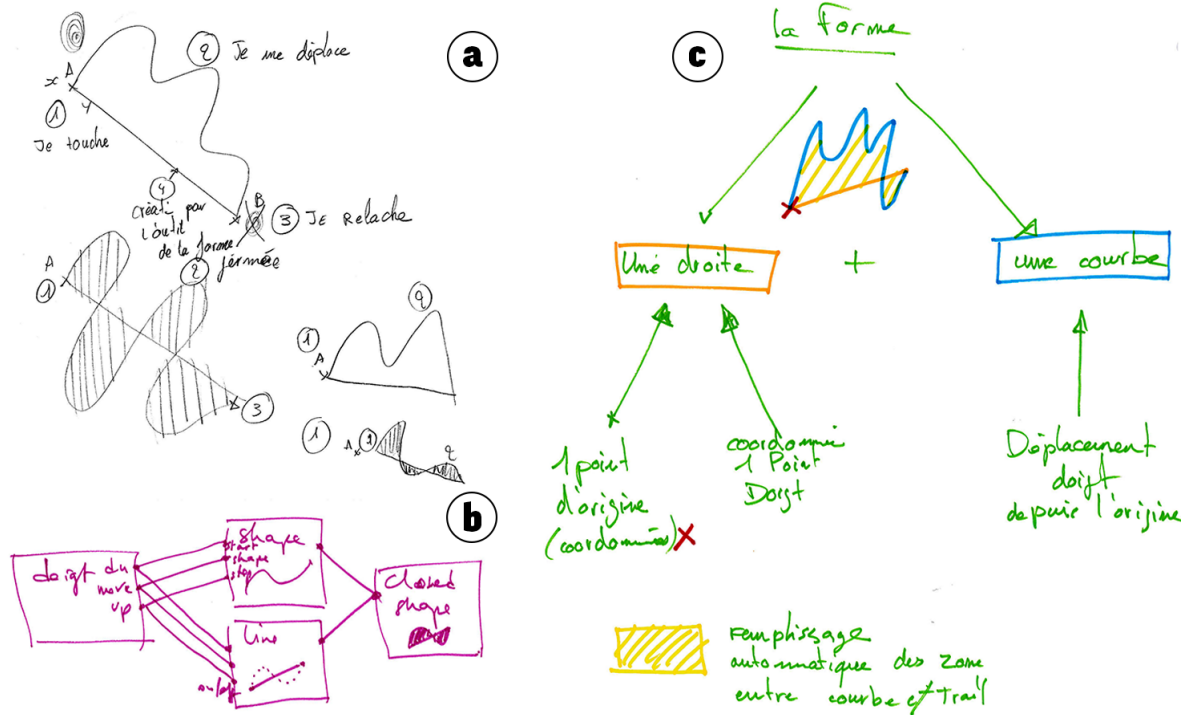 a
A
x
1
Y
Je touche
2 Je me déplace
4
créati par
l'outil
de la forme
fermée
B
3 JE Relache
A
1
2
3
1
A
2
1
A x
2
b
doigt du
move
up
shape
start
shape
stop
Line
Closed
shape
c
la forme
Une droite
+
une courbe
1 point
d'origine
(coordonnées) X
coordonnée
1 Point
Doigt
Déplacement
doigt
depuis l'origine
remplissage
automatique des zone
entre courbe et trail